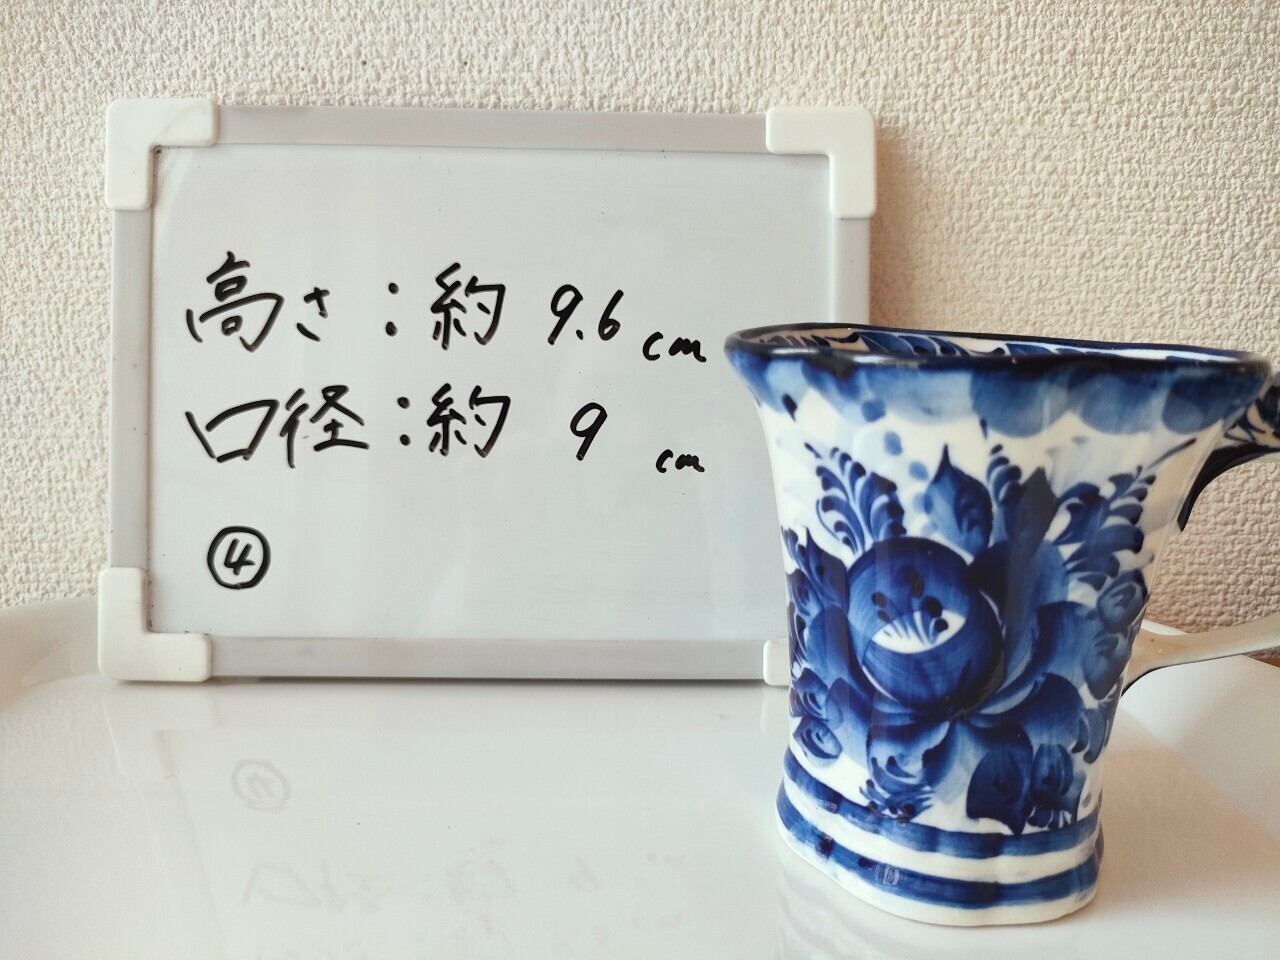 高さ：約 9.6 cm
口径：約 9 cm
④